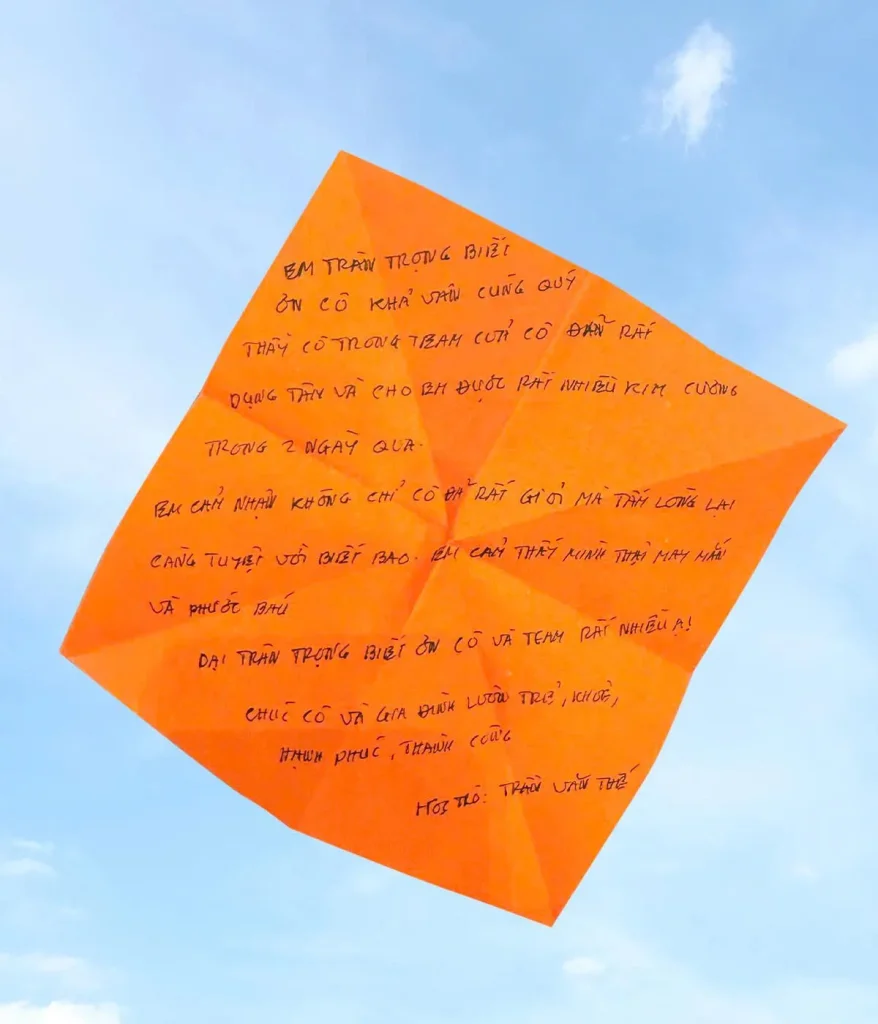 EM TRÂN TRỌNG BIẾT
ƠN CÔ KHẢ VÂN CÙNG QUÝ
THẦY CÔ TRONG TEAM CỦA CÔ ĐÃ RẤT
DỤNG TÂM VÀ CHO EM ĐƯỢC RẤT NHIỀU KIM CƯƠNG
TRONG 2 NGÀY QUA.
EM CẢM NHẬN KHÔNG CHỈ CÔ ĐÃ RẤT GIỎI MÀ TẤM LÒNG LẠI
CÀNG TUYỆT VỜI BIẾT BAO. EM CẢM THẤY MÌNH THẬT MAY MẮN
VÀ PHƯỚC BÁU
DẠI TRÂN TRỌNG BIẾT ƠN CÔ VÀ TEAM RẤT NHIỀU Ạ!
CHÚC CÔ VÀ GIA ĐÌNH LUÔN TRẺ, KHOẺ,
HẠNH PHÚC, THÀNH CÔNG
HỌC TRÒ: TRẦN VĂN THẾ